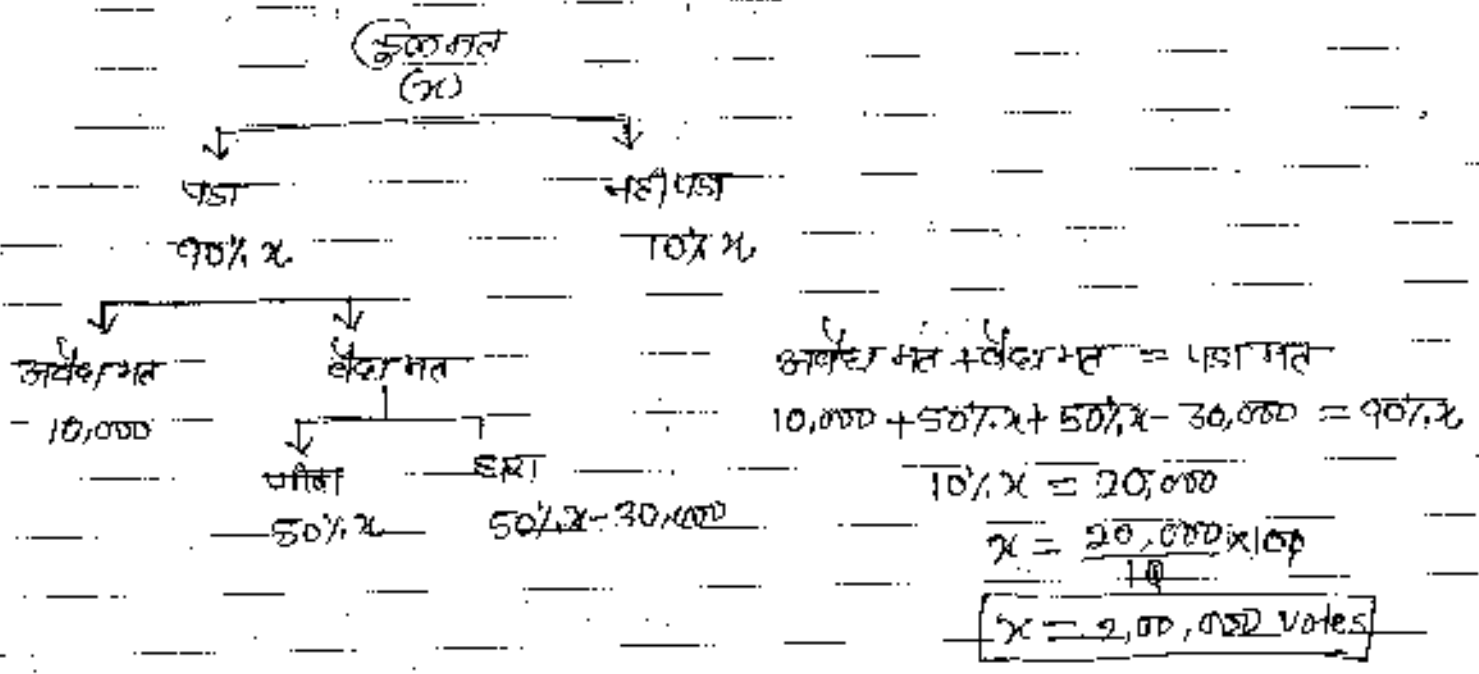 कुल मत
(x)
पडा
नही पडा
90% x
10% x
अवैध मत
वैध मत
10,000
जीता
हारा
50% x
50% x - 30,000
अवैध मत + वैध मत = पडा मत
10,000 + 50% x + 50% x - 30,000 = 90% x
10% x = 20,000
x = 20,000 x 100
10
x = 2,00,000 votes